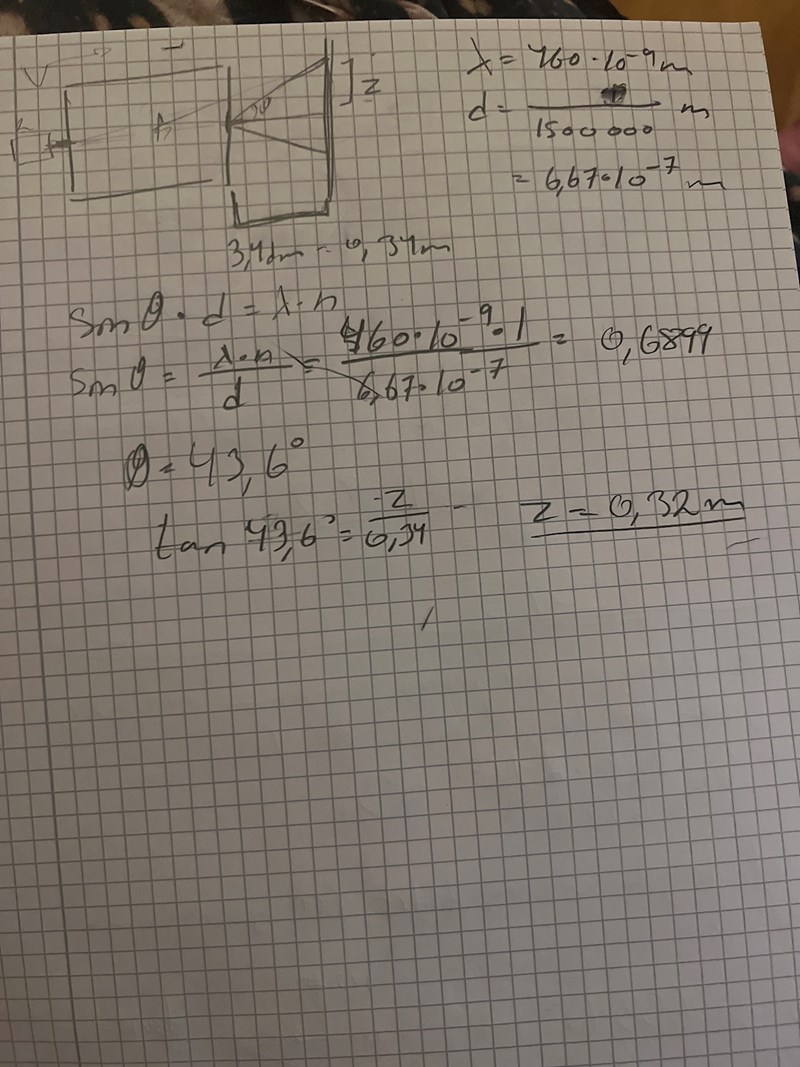 z
λ = 460·10⁻⁹m
d = ―――― m
1500 000
= 6,67·10⁻⁷ m
3,4dm = 0,34m
Sin θ · d = λ·n
Sin θ = λ·n / d = 460·10⁻⁹·1 / 6,67·10⁻⁷ = 0,6899
θ = 43,6°
tan 43,6° = z / 0,34
z = 0,32 m